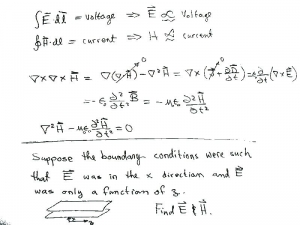 ∫E⃗·dl⃗ = voltage ⇒ E⃗ ∝ Voltage
∮H⃗·dl = current ⇒ H ∝ current
∇×∇×H⃗ = ∇(∇·H⃗) - ∇²H⃗ = ∇×(J⃗ + ∂D⃗/∂t) = ε ∂/∂t (∇×E⃗)
= -ε ∂²/∂t² B⃗ = -με ∂²H⃗/∂t²
∇²H⃗ - με ∂²H⃗/∂t² = 0
Suppose the boundary conditions were such
that E⃗ was in the x direction and E⃗
was only a function of z.
Find E⃗ & H⃗.